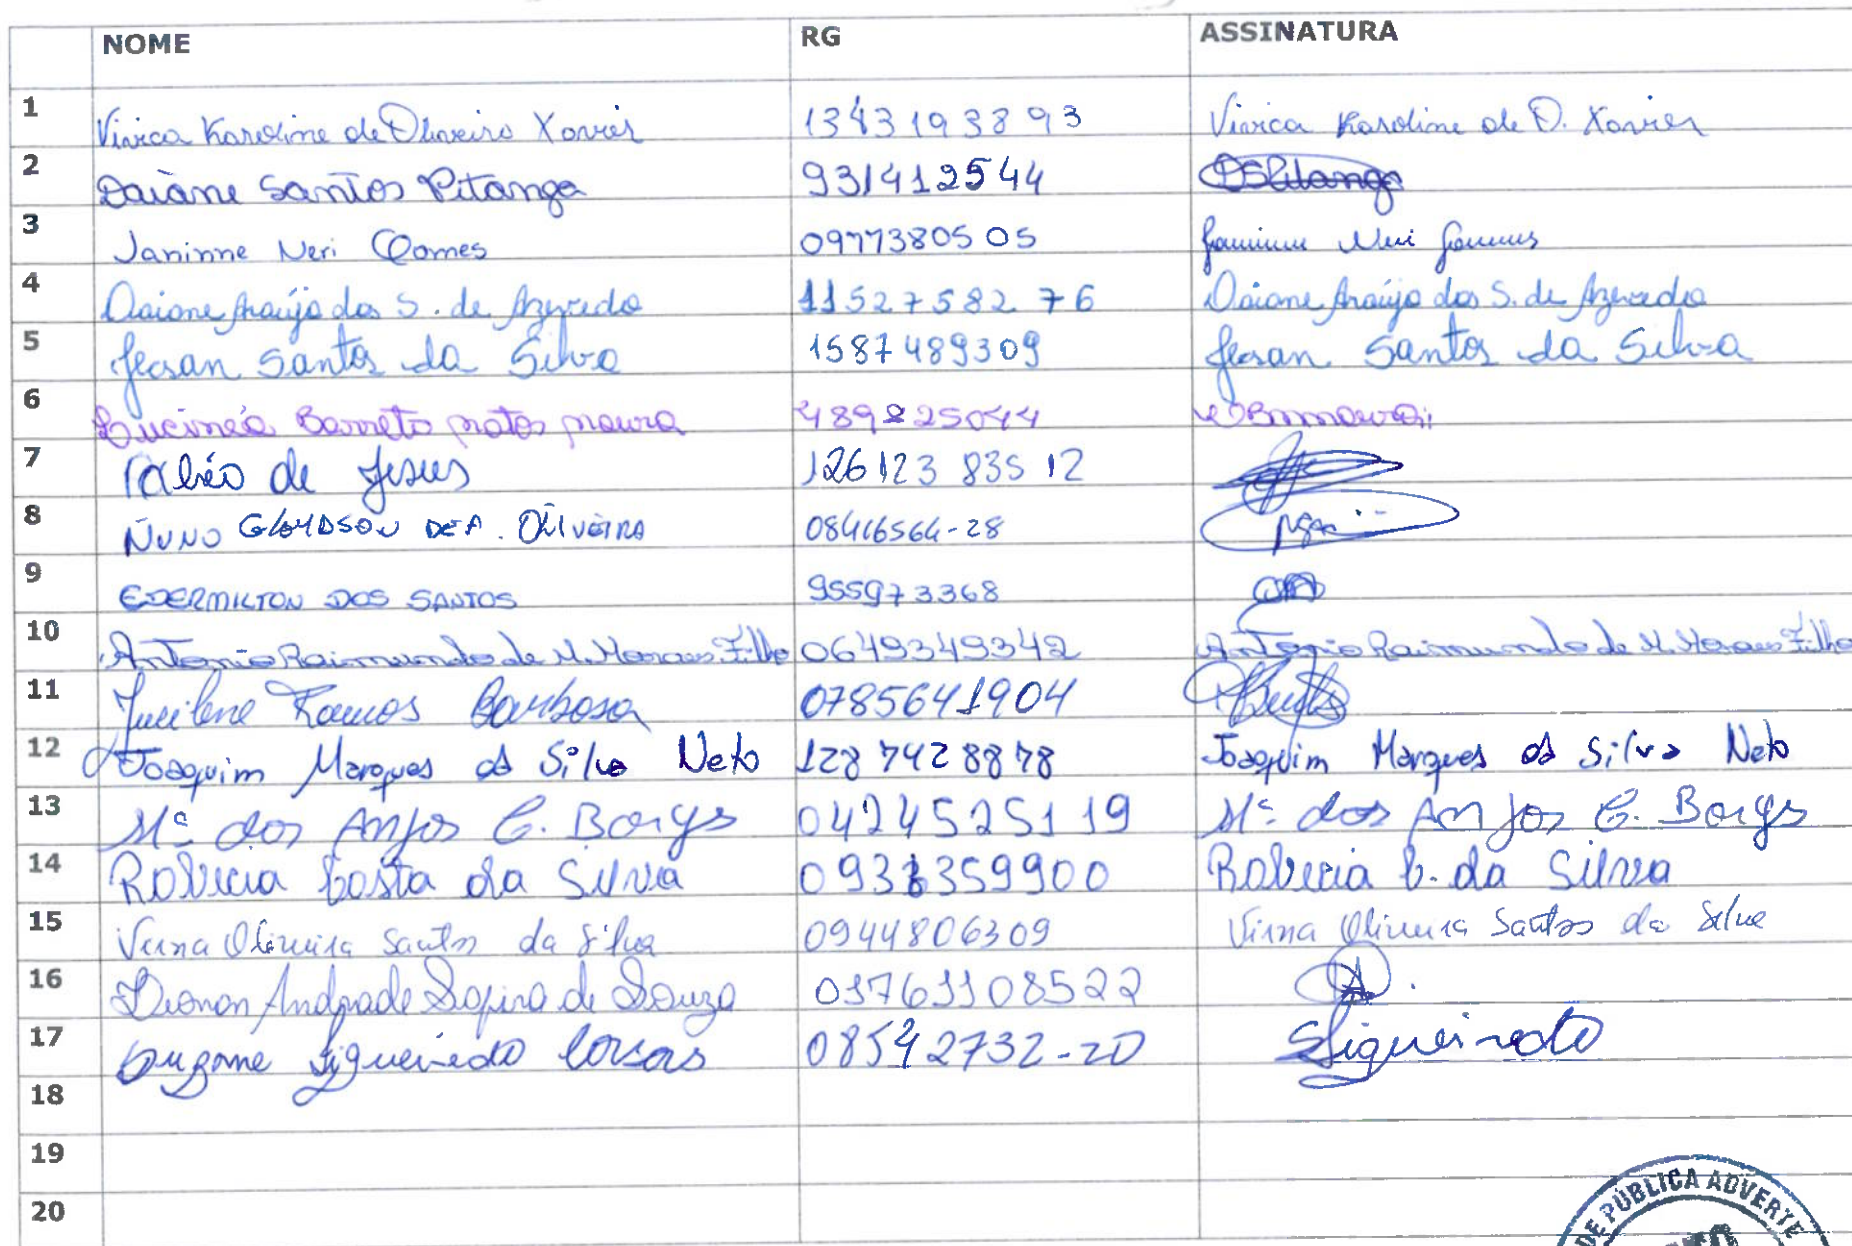 NOME RG ASSINATURA
1 Vivica Karoline de Oliveira Xavier 1343193893 Vivica Karoline de O. Xavier
2 Daiane Santos Pitanga 931412544 DSPitanga
3 Janinne Neri Gomes 0977380505 Janinne Neri Gomes
4 Daiane Araújo dos S. de Azevedo 1152758276 Daiane Araújo dos S. de Azevedo
5 Jeosan Santos da Silva 1587489309 Jeosan Santos da Silva
6 Lucinéa Barreto matos moura 489825044
7 de Jesus 12612383512
8 NUNO GLAYDSON DE A. OLIVEIRA 08416564-28
9 EDERMILTON DOS SANTOS 955973368
10 Antonio Raimundo de M. Moraes Filho 0649349342 Antonio Raimundo de M. Moraes Filho
11 Jucilene Ramos Barbosa 0785641904
12 Joaquim Marques da Silva Neto 1287428878 Joaquim Marques da Silva Neto
13 Mª dos Anjos C. Borges 0424525119 Mª dos Anjos C. Borges
14 Robécia Costa da Silva 0931359900 Robécia C. da Silva
15 Virna Oliveira Santos da Silva 0944806309 Virna Oliveira Santos da Silva
16 Andrade Sapira de Souza 01761108522
17 Suzane Figueiredo 08542732-20 SFigueiredo
18
19
20
DE PÚBLICA ADVERTE